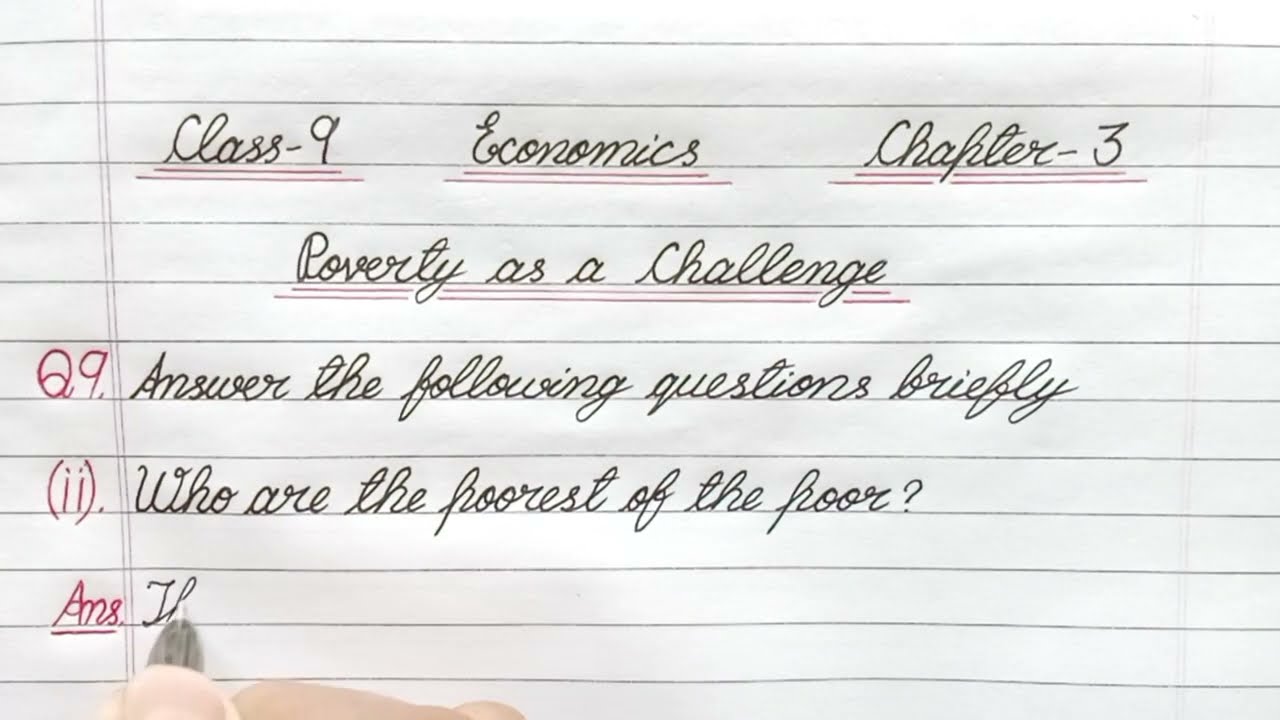 Class-9 Economics Chapter-3
Poverty as a Challenge
Q9. Answer the following questions briefly
(ii). Who are the poorest of the poor?
Ans.